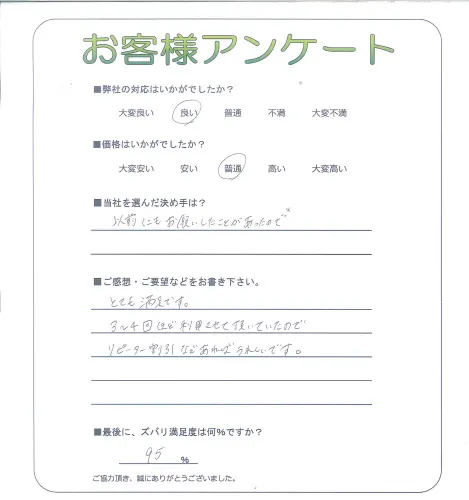 お客様アンケート
■弊社の対応はいかがでしたか?
大変良い 良い 普通 不満 大変不満
■価格はいかがでしたか?
大変安い 安い 普通 高い 大変高い
■当社を選んだ決め手は?
以前にもお願いしたことがあったので
■ご感想・ご要望などをお書き下さい。
とても満足です。
3〜4回ほど利用させて頂いていたので
リピーター割引などあればうれしいです。
■最後に、ズバリ満足度は何%ですか?
95 %
ご協力頂き、誠にありがとうございました。